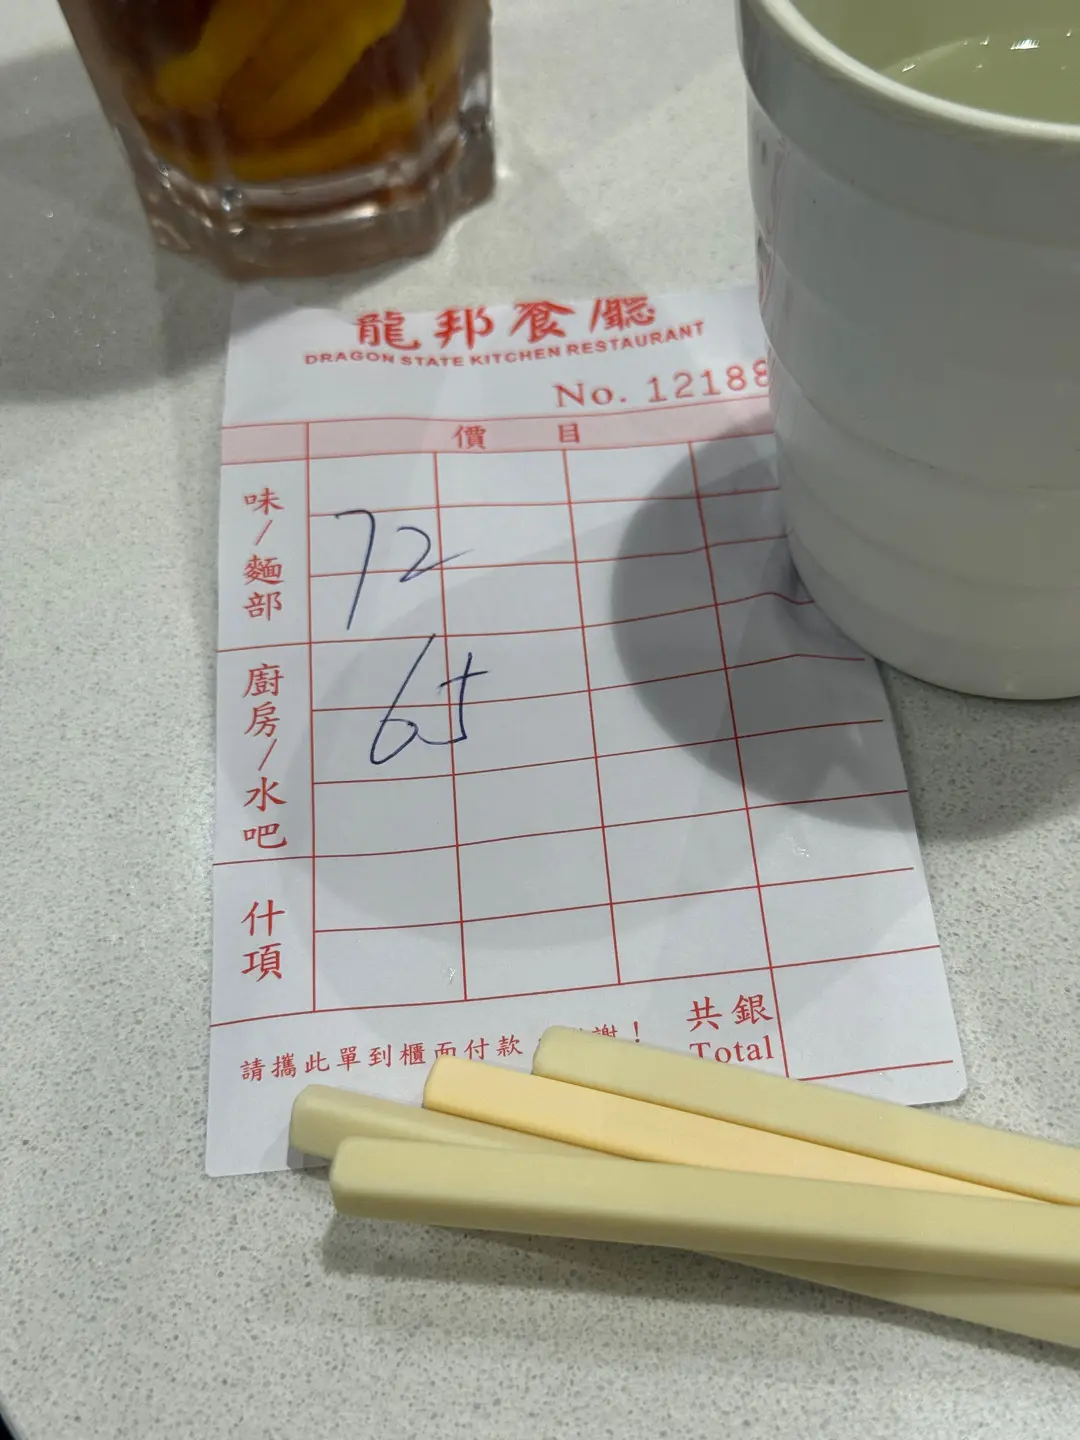 龍邦餐廳
DRAGON STATE KITCHEN RESTAURANT
No. 12188
價目
味/麵部
72
廚房/水吧
65
什項
請攜此單到櫃面付款
謝!
共銀
Total